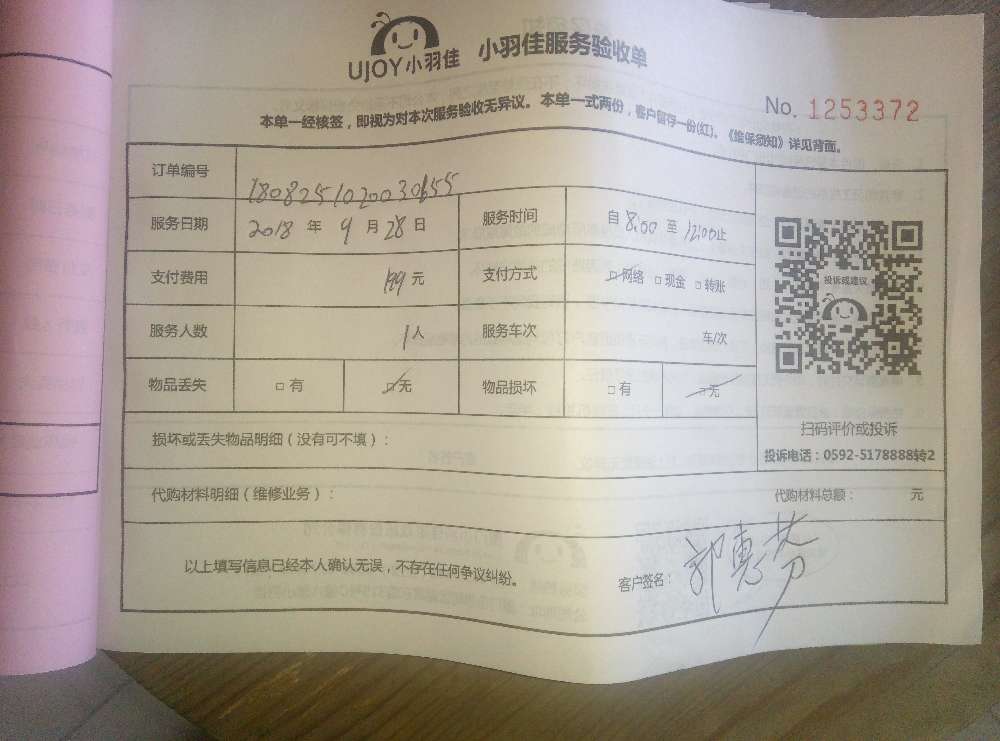 UJOY小羽佳 小羽佳服务验收单
No. 1253372
本单一经核签，即视为对本次服务验收无异议。本单一式两份，客户留存一份(红)。《维保须知》详见背面。
订单编号 1808251020030655
服务日期 2018 年 9 月 28 日 服务时间 自 8:00 至 12:00止
支付费用 199 元 支付方式 □网络 □现金 □转账
服务人数 1人 服务车次 车/次
投诉或建议
物品丢失 □有 □无 物品损坏 □有 □无
扫码评价或投诉
损坏或丢失物品明细（没有可不填）：
投诉电话：0592-5178888转2
代购材料明细（维修业务）： 代购材料总额： 元
以上填写信息已经本人确认无误，不存在任何争议纠纷。 客户签名：郭惠芬